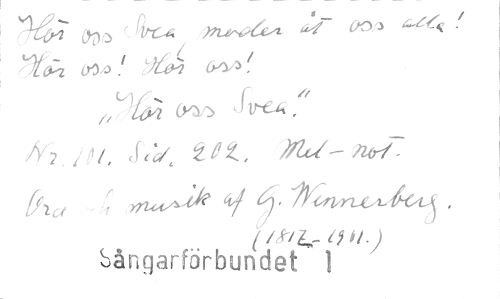 Hör oss Svea, moder åt oss alla!
Hör oss! Hör oss!
„Hör oss Svea."
Nr. 101. Sid. 202. Mel-not.
Ord och musik af G. Wennerberg.
(1817-1901.)
Sångarförbundet 1